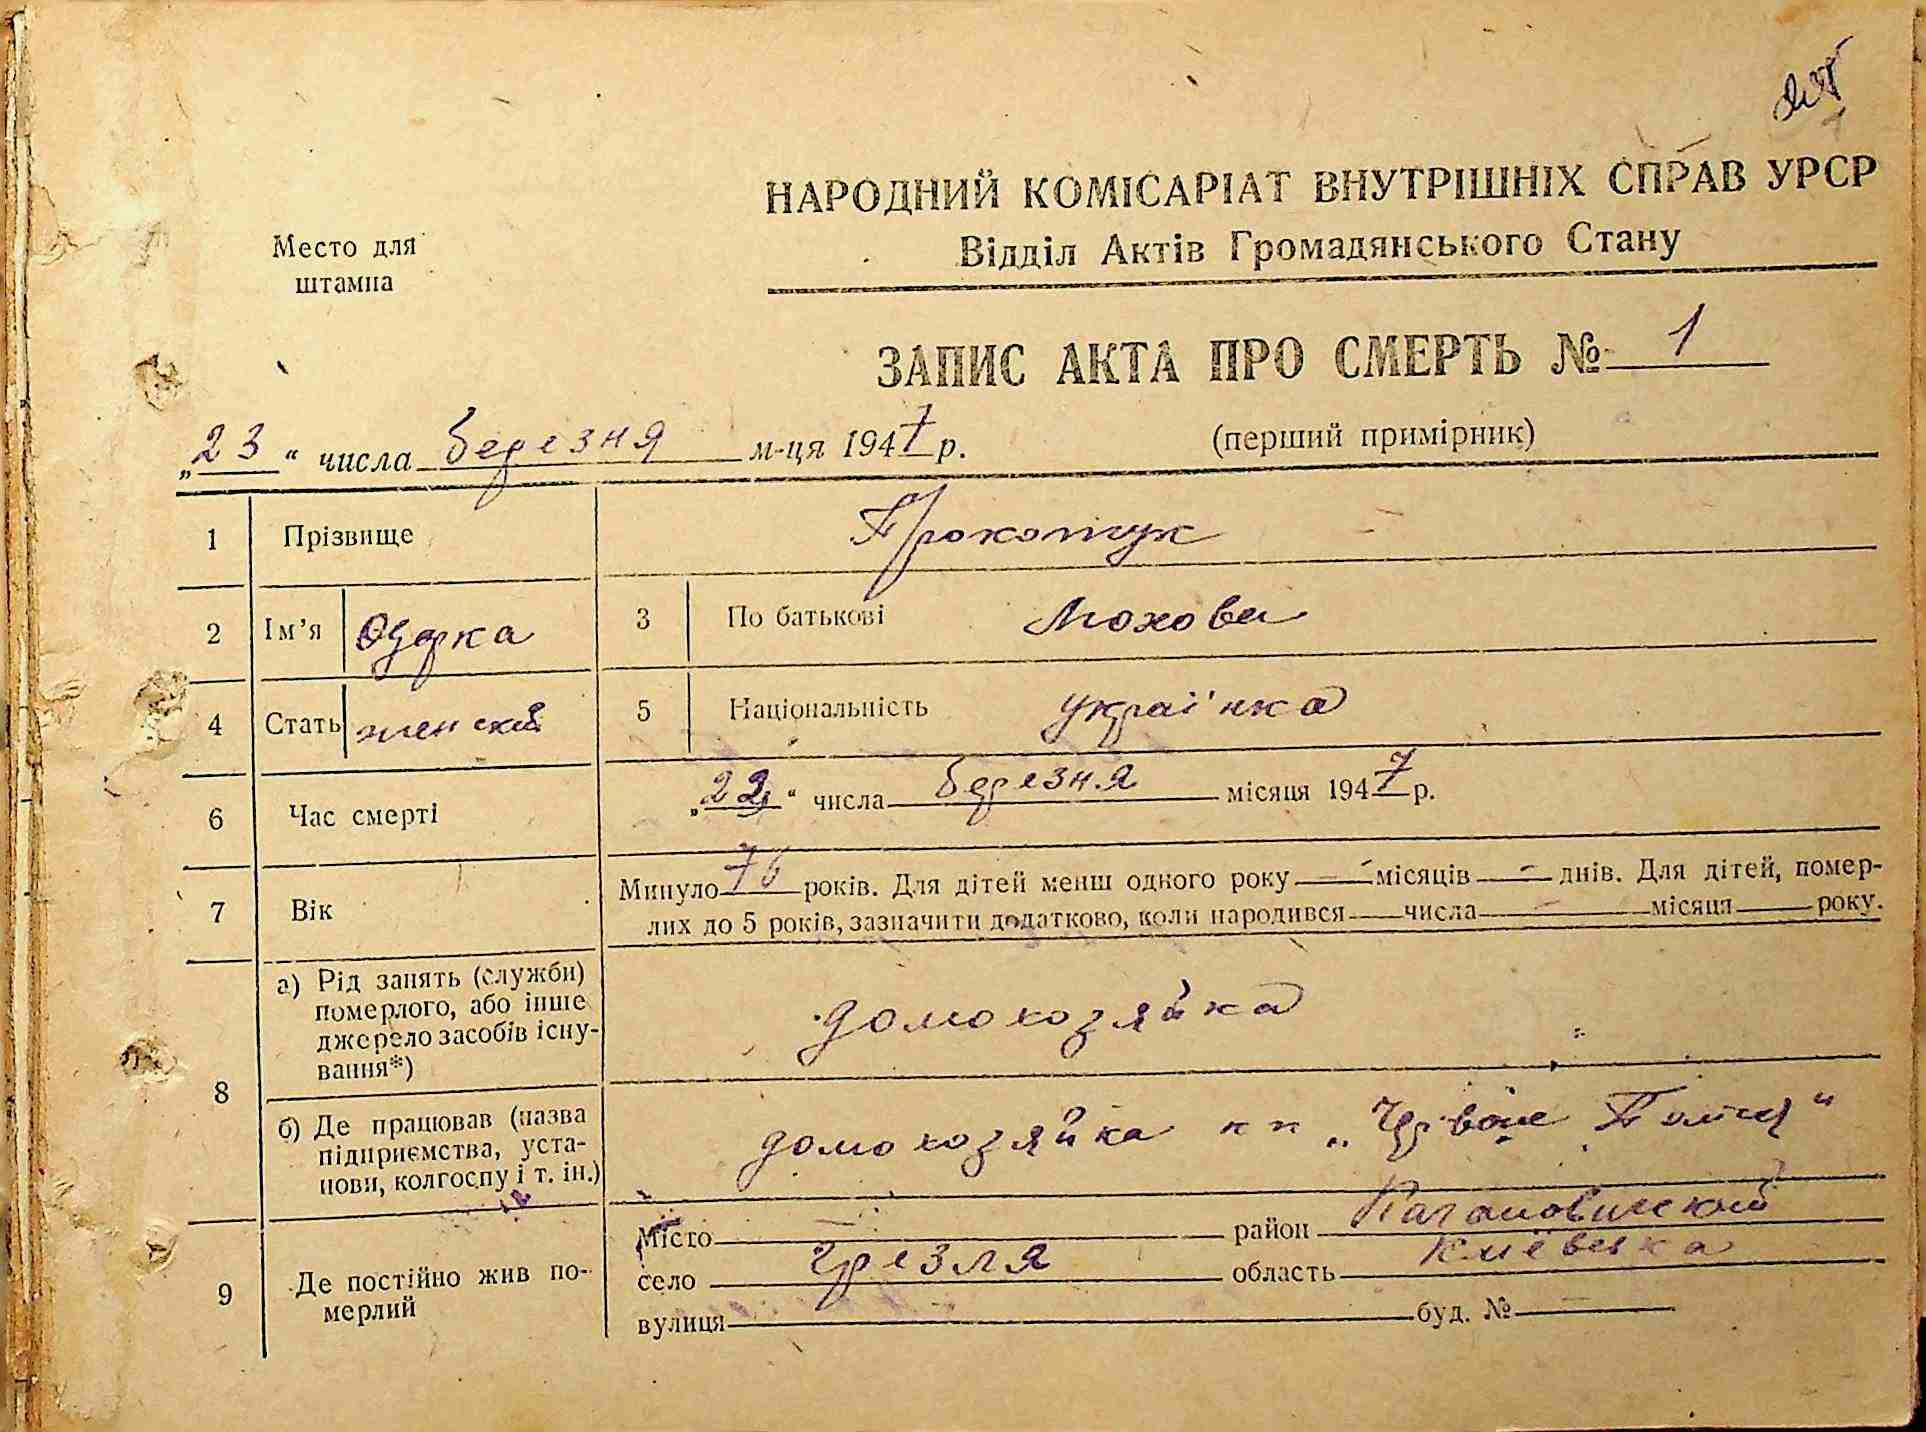 НАРОДНИЙ КОМІСАРІАТ ВНУТРІШНІХ СПРАВ УРСР
Відділ Актів Громадянського Стану
Место для
штампа
ЗАПИС АКТА ПРО СМЕРТЬ № 1
„23“ числа березня м-ця 1947 р.
(перший примірник)
1 Прізвище Прокопчук
2 Ім’я Одарка 3 По батькові
4 Стать женский 5 Національність українка
6 Час смерті „22“ числа березня місяця 1947 р.
7 Вік Минуло 76 років. Для дітей менш одного року - місяців - днів. Для дітей, помер-
лих до 5 років, зазначити додатково, коли народився числа - місяця року.
8 а) Рід занять (служби)
померлого, або інше
джерело засобів існу-
вання*)
домохозяйка
б) Де працював (назва
підприємства, уста-
нови, колгоспу і т. ін.)
домохозяйка „Червоне
9 Де постійно жив по-
мерлий
Місто — район Кагановичский
село Грезля область Киевска
вулиця буд. № —